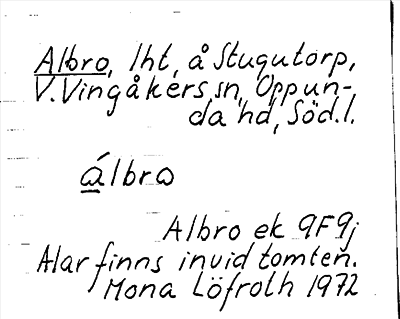 Albro, lht, å Stugutorp,
V. Vingåkers sn, Oppun-
da hd, Söd.l.
álbro
Albro ek 9F9j
Alar finns invid tomten.
Mona Löfroth 1972